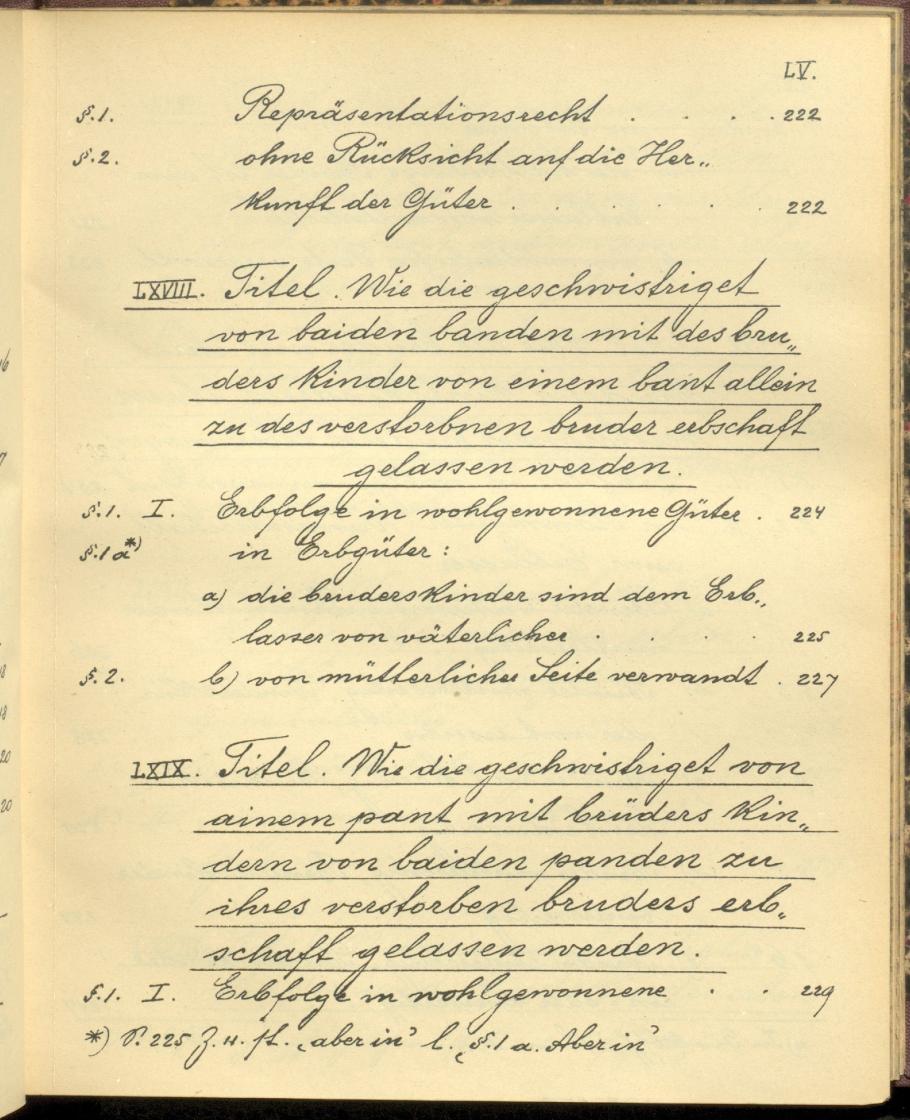 LV.
§.1. Repräsentationsrecht . . . . 222
§.2. ohne Rücksicht auf die Her„
kunft der Güter . . . . . 222
LXVIII. Titel. Wie die geschwistriget
von baiden banden mit des bru„
ders kinder von einem bant allein
zu des verstorbnen bruder erbschaft
gelassen werden.
§.1. I. Erbfolge in wohlgewonnene Güter . 224
§.1a*) in Erbgüter:
a) die bruderskinder sind dem Erb„
lasser von väterlicher . . . . 225
§.2. b) von mütterlicher Seite verwandt . 227
LXIX. Titel. Wie die geschwistriget von
ainem pant mit brüders kin„
dern von baiden panden zu
ihres verstorben bruders erb„
schaft gelassen werden.
§.1. I. Erbfolge in wohlgewonnene . . 229
*) S. 225 Z. 4. st. ‚aber in’ l. ‚§.1 a. Aber in’